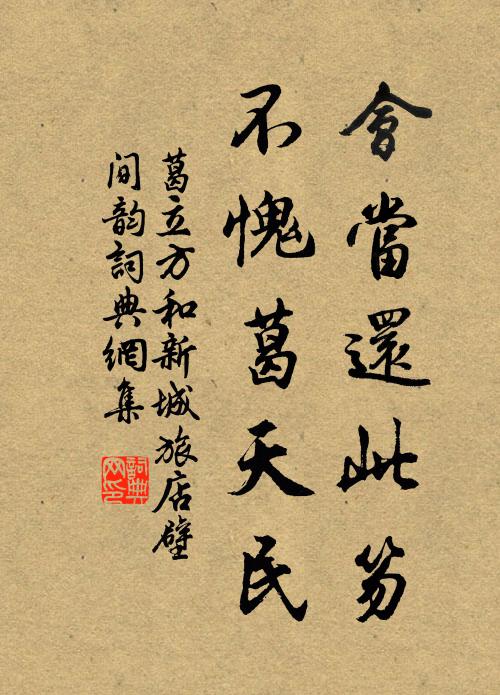 會當還此笏
不愧葛天民
葛立方和新城旅店壁
間韵詞典網集
詞典
网印